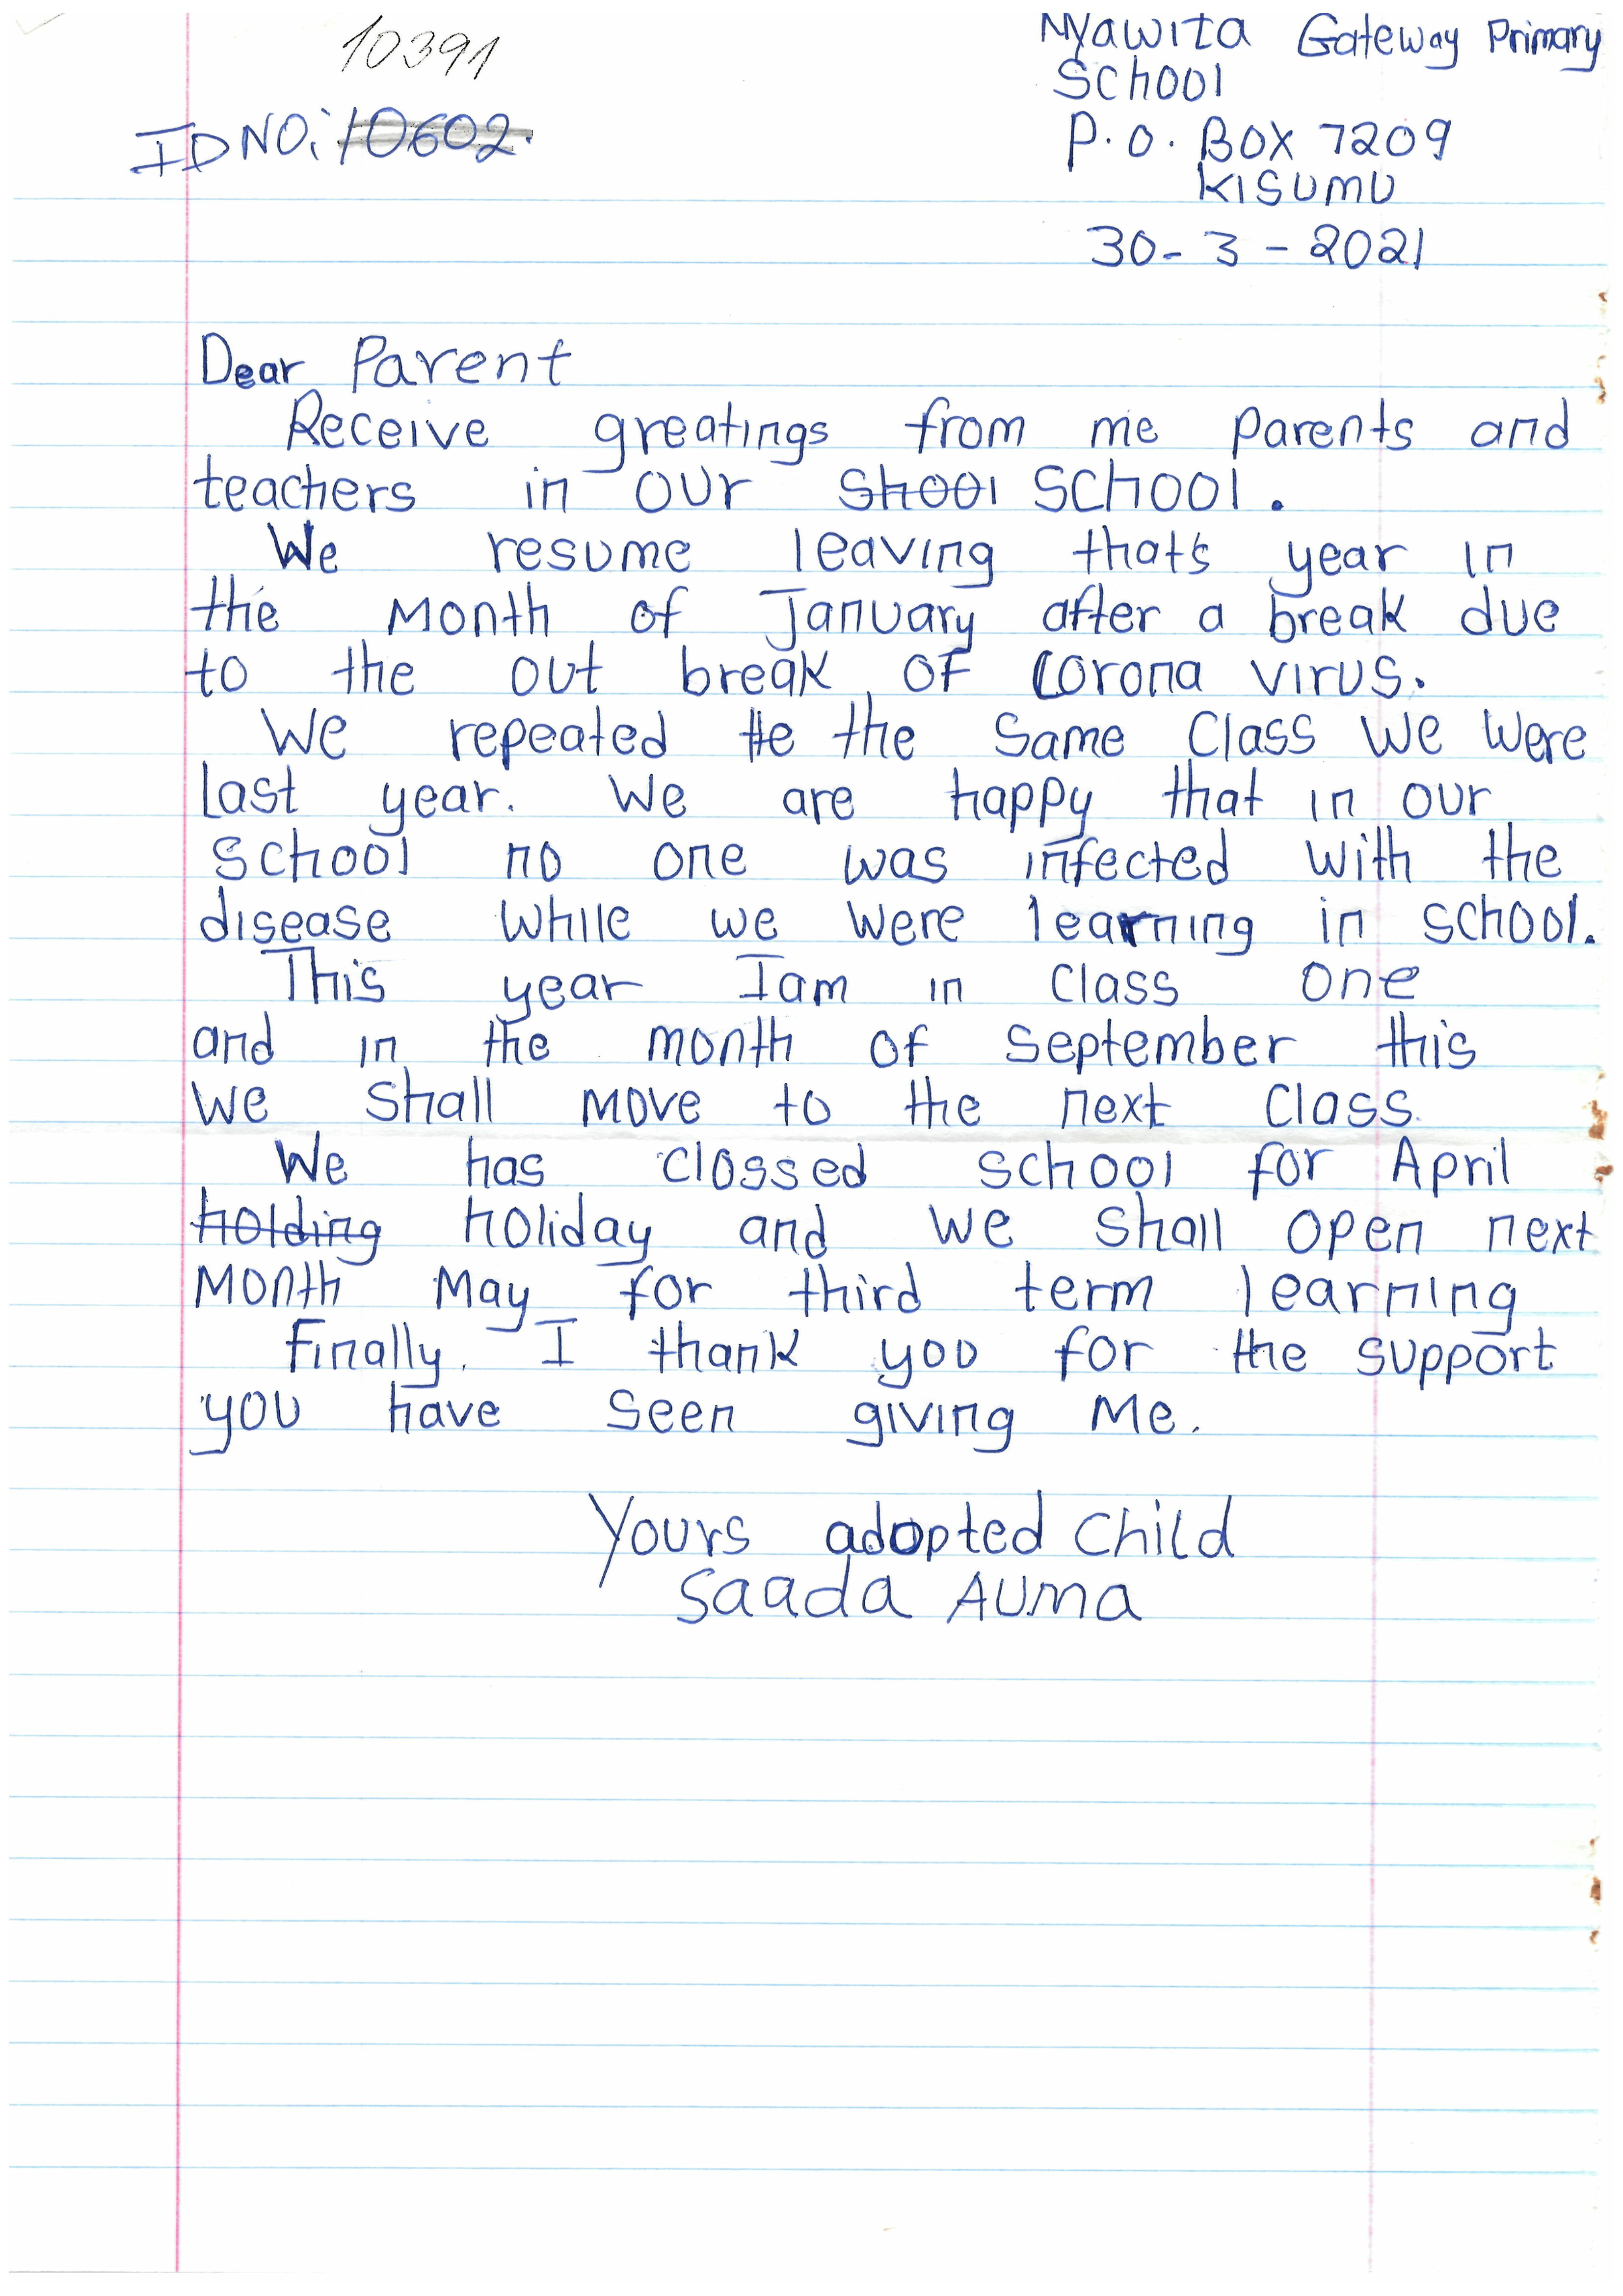 10391
ID NO: 10602.
Nyawita Gateway Primary
School
P.O. BOX 7209
KISUMU
30-3-2021
Dear Parent
Receive greatings from me parents and
teachers in our shool school.
We resume leaving that's year in
the month of January after a break due
to the out break of corona virus.
We repeated te the same class we were
last year. We are happy that in our
school no one was infected with the
disease while we were learning in school.
This year Iam in class one
and in the month of september this
we shall move to the next class.
We has clossed school for April
holding holiday and we shall open next
month May for third term learning
Finally. I thank you for the support
you have seen giving me.
Yours adopted child
Saada Auma